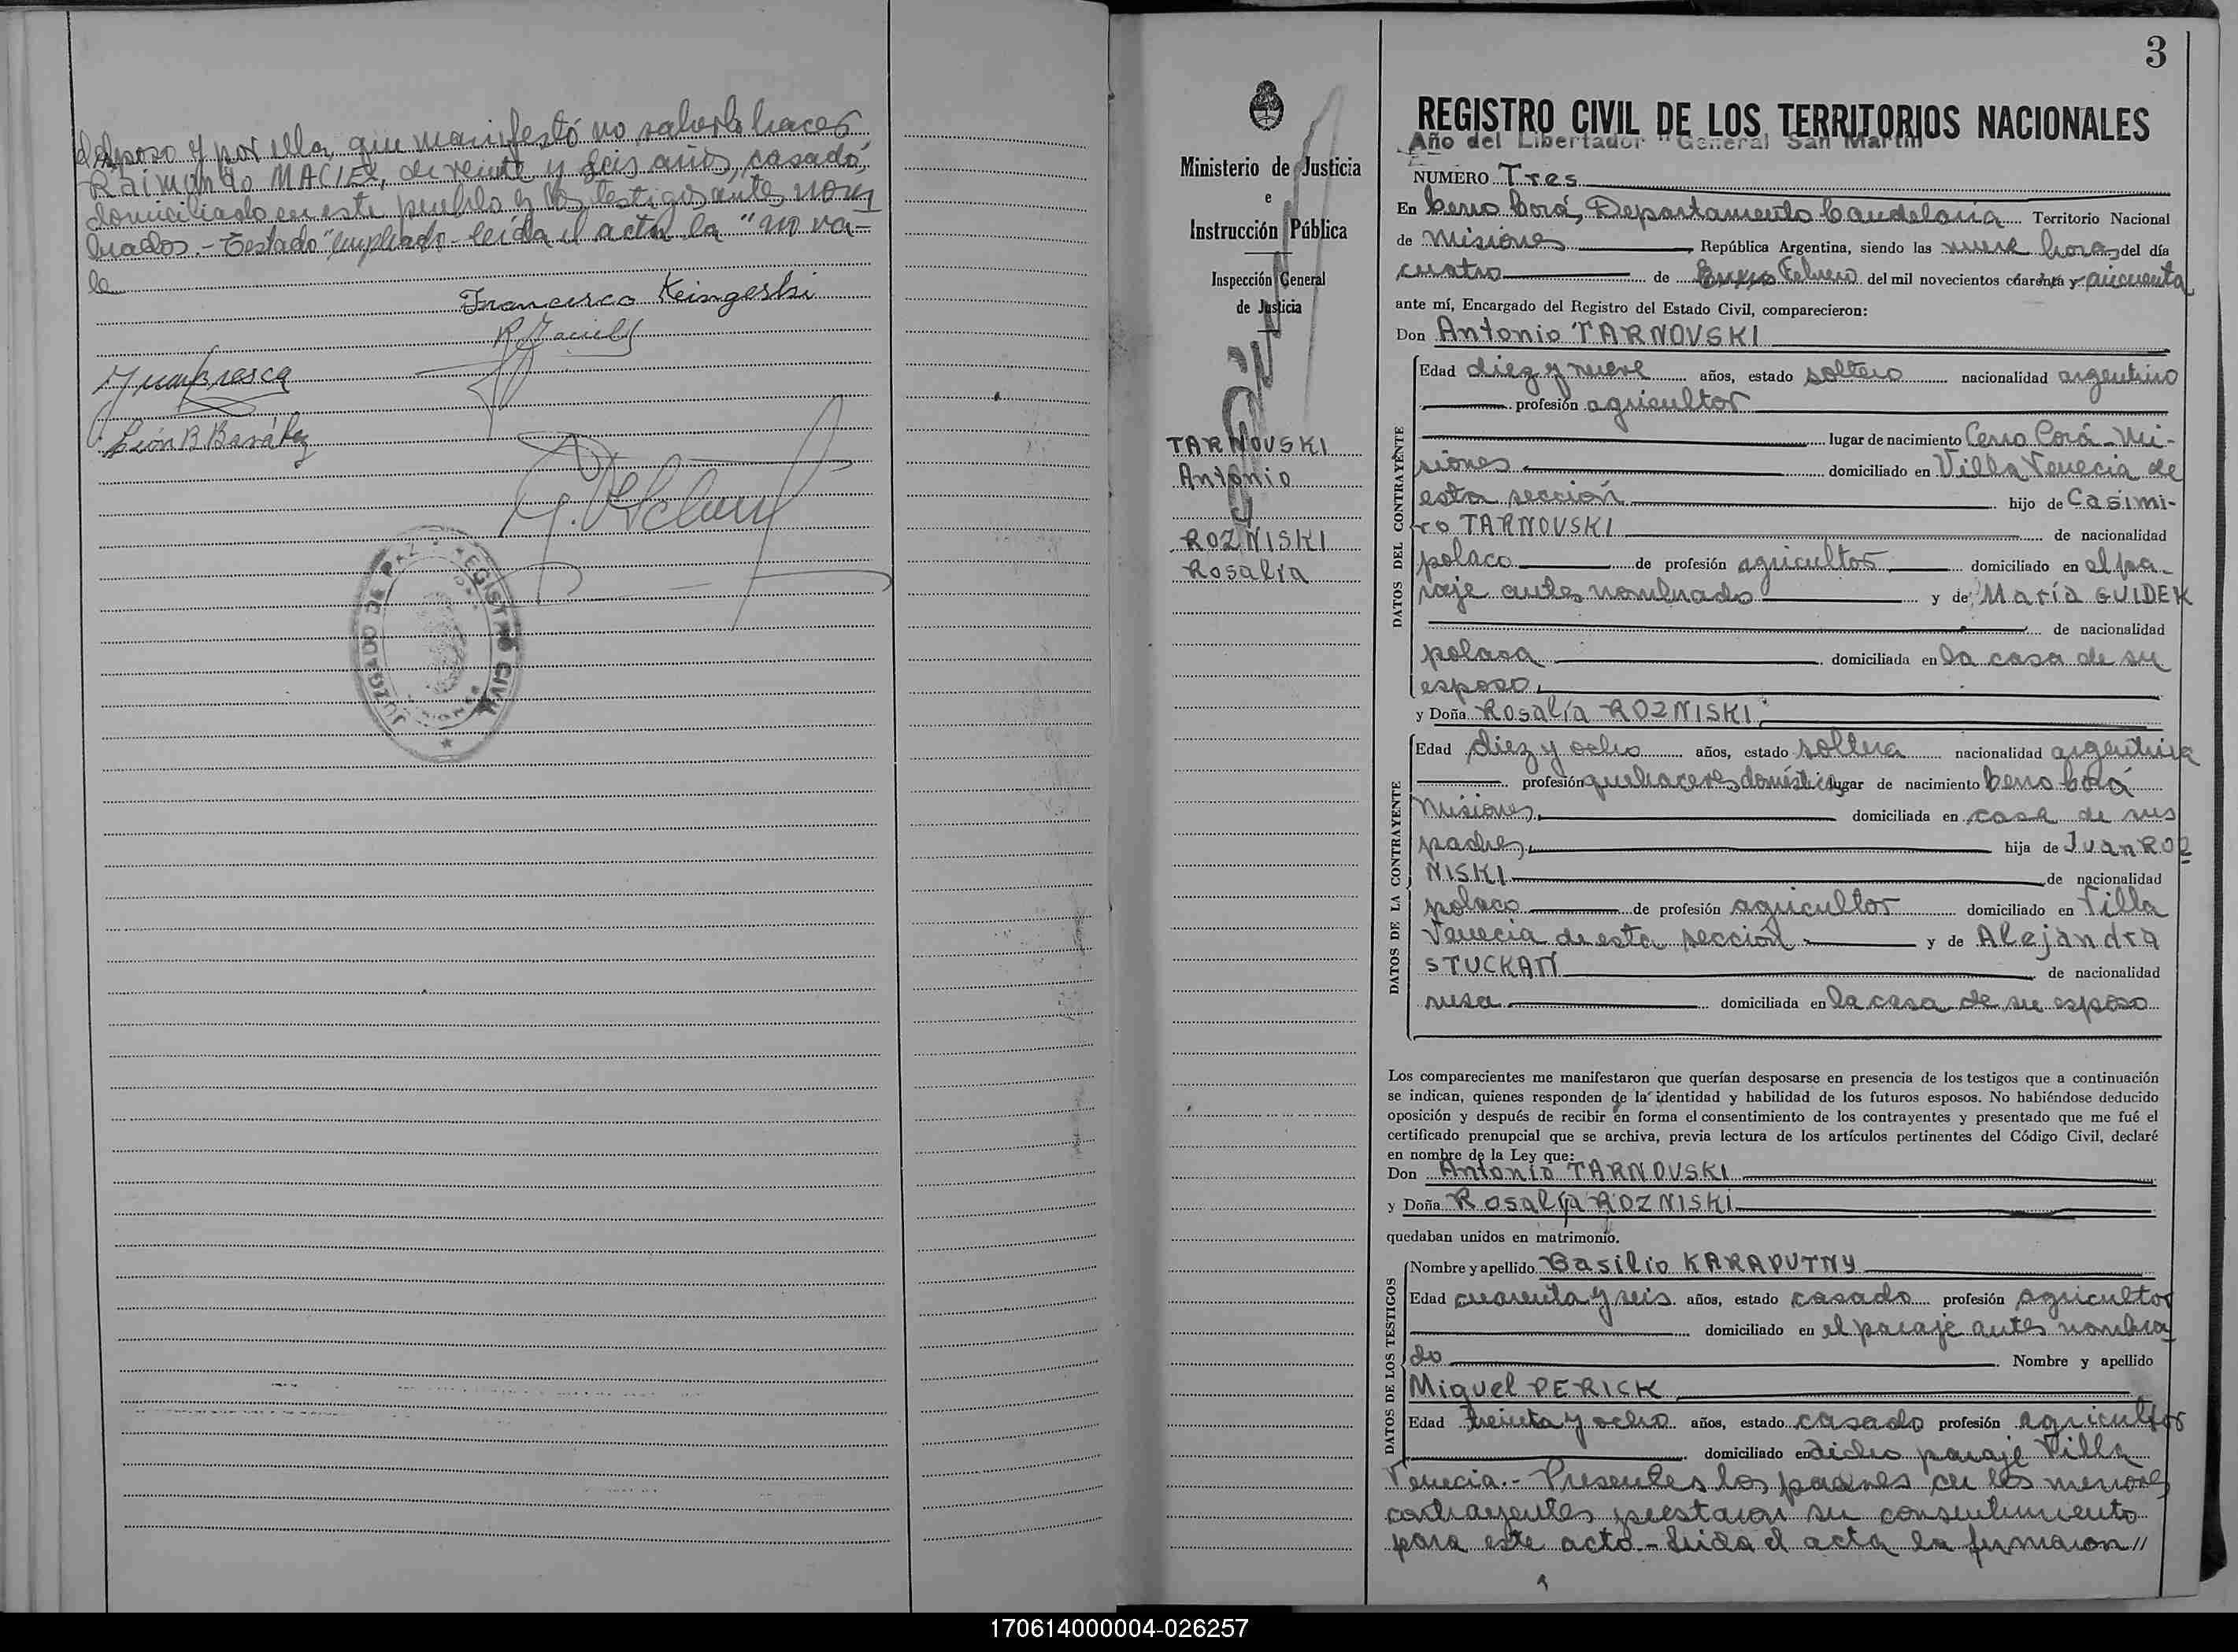 desposo y por ella, que manifestó no saberlo hacer
Raimundo MACIEL, de veinte y seis años, casado,
domiciliado en este pueblo y los testigos antes nom
brados.- Testado "empleado- leída el acta la "no va-
le
Francisco Keingeski
R Maciel
León B Benítez
JUZGADO DE PAZ Y REGISTRO CIVIL
3
Ministerio de Justicia
e
Instrucción Pública
Inspección General
de Justicia
TARNOVSKI
Antonio
ROZNISKI
Rosalía
REGISTRO CIVIL DE LOS TERRITORIOS NACIONALES
Año del Libertador "General San Martín
NUMERO Tres
En Cerro Corá, Departamento Candelaria Territorio Nacional
de Misiones, República Argentina, siendo las nueve horas del día
cuatro de Enero Febrero del mil novecientos cuarenta y cincuenta
ante mí, Encargado del Registro del Estado Civil, comparecieron:
Don Antonio TARNOVSKI
DATOS DEL CONTRAYENTE
Edad diez y nueve años, estado soltero nacionalidad argentino
profesión agricultor
lugar de nacimiento Cerro Corá-Mi-
siones domiciliado en Villa Venecia de
esta sección hijo de Casimi-
ro TARNOVSKI de nacionalidad
polaco de profesión agricultor domiciliado en el pa-
raje antes nombrado y de María GUIDEK
de nacionalidad
polaca domiciliada en la casa de su
esposo,
y Doña Rosalía ROZNISKI
DATOS DE LA CONTRAYENTE
Edad diez y ocho años, estado soltera nacionalidad argentina
profesión quehaceres domésticos lugar de nacimiento Cerro Corá
Misiones, domiciliada en casa de sus
padres, hija de Juan ROZ
NISKI de nacionalidad
polaco de profesión agricultor domiciliado en Villa
Venecia de esta sección y de Alejandra
STUCKAN de nacionalidad
rusa domiciliada en la casa de su esposo
Los comparecientes me manifestaron que querían desposarse en presencia de los testigos que a continuación
se indican, quienes responden de la identidad y habilidad de los futuros esposos. No habiéndose deducido
oposición y después de recibir en forma el consentimiento de los contrayentes y presentado que me fué el
certificado prenupcial que se archiva, previa lectura de los artículos pertinentes del Código Civil, declaré
en nombre de la Ley que:
Don Antonio TARNOVSKI
y Doña Rosalía ROZNISKI
quedaban unidos en matrimonio.
DATOS DE LOS TESTIGOS
Nombre y apellido Basilio KARAPUTNY
Edad cuarenta y seis años, estado casado profesión agricultor
domiciliado en el paraje antes nombra
do Nombre y apellido
Miguel PERICK
Edad treinta y ocho años, estado casado profesión agricultor
domiciliado en dicho paraje Villa
Venecia.- Presentes los padres de los menores
contrayentes prestaron su consentimiento
para este acto.- Leída el acta la firmaron//
170614000004-026257